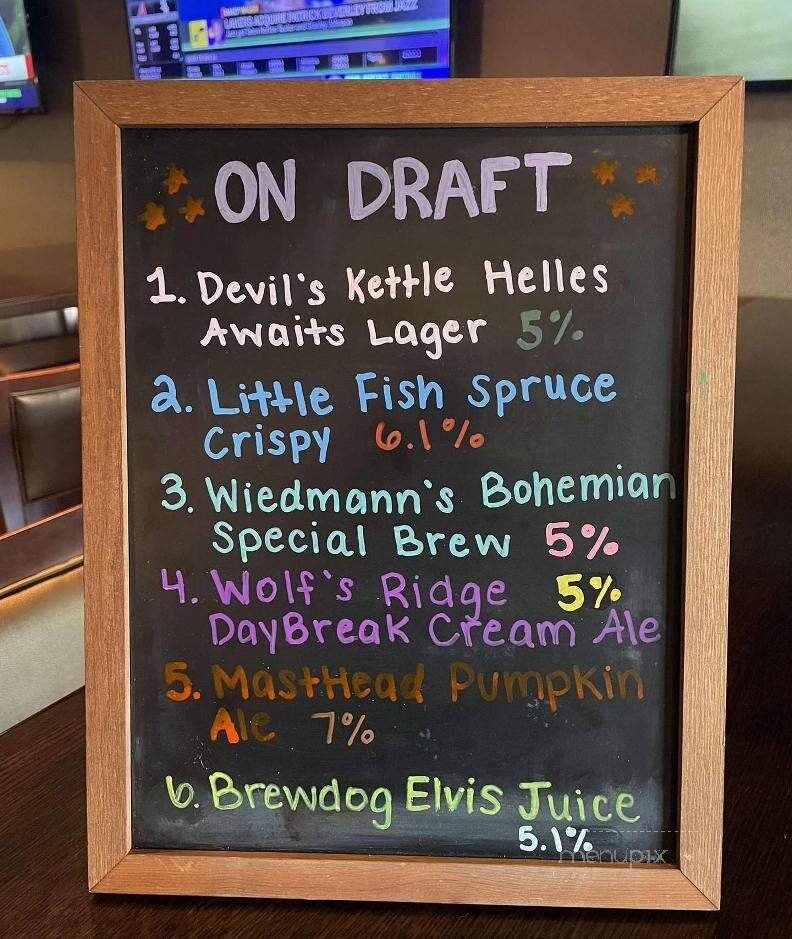 LAKERS ACQUIRE PATRICK BEVERLEY FROM JAZZ
ON DRAFT
1. Devil's Kettle Helles
Awaits Lager 5%
2. Little Fish Spruce
Crispy 6.1%
3. Wiedmann's Bohemian
Special Brew 5%
4. Wolf's Ridge 5%
DayBreak Cream Ale
5. MastHead Pumpkin
Ale 7%
6. Brewdog Elvis Juice
5.1%
menupix